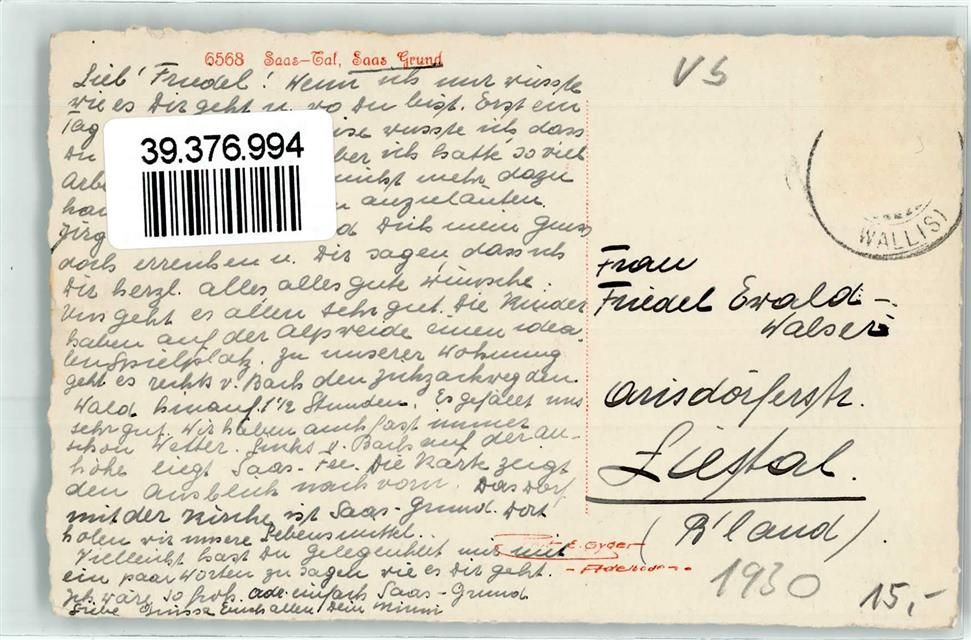 6568 Saas-Tal, Saas Grund
VS
Lieb' Friedel! Wenn ich nur wüsste
wie es Dir geht u. wo Du bist. Erst ein
Tag wusste ich dass
Du aber ich hatte so viel
Arbe nicht mehr dazu
anzuläuten.
Dich mein Gruss
doch erreichen u. Dir sagen, dass ich
Dir herzl. alles alles gute wünsche.
Uns geht es allen sehr gut. Die Kinder
haben auf der Alpweide einen idea-
len Spielplatz. Zu unserer Wohnung
geht es rechts v. Bach den Zickzackweg den
Wald hinauf 1½ Stunden. Es gefällt uns
sehr gut. Wir haben auch fast immer
schön Wetter. Links v. Bach auf der An-
höhe liegt Saas-Fee. Die Karte zeigt
den Ausblick nach vorn. Das Dorf
mit der Kirche ist Saas-Grund. Dort
holen wir unsere Lebensmittel.
Vielleicht hast Du Gelegenheit uns mit
ein paar Worten zu sagen wie es Dir geht.
Ich wäre so froh. Saas-Grund
Liebe Grüsse Euch allen Dein
39.376.994
WALLIS)
Frau
Friedel Ewald-
Walser
Arisdörferstr.
Liestal.
(B'land)
E. Gyger
- Adelboden -
1930
15,-